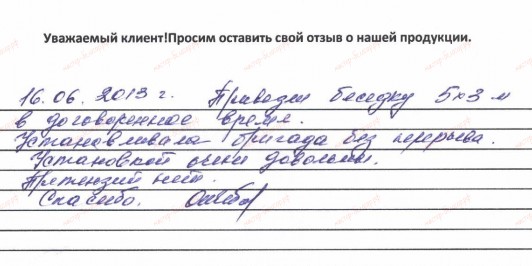 Уважаемый клиент!Просим оставить свой отзыв о нашей продукции.
16.06.2013 г. Привезли беседку 5х3 м
в договоренное время.
Устанавливала бригада без перерыва.
Установкой очень довольны.
Претензий нет.
Спасибо.